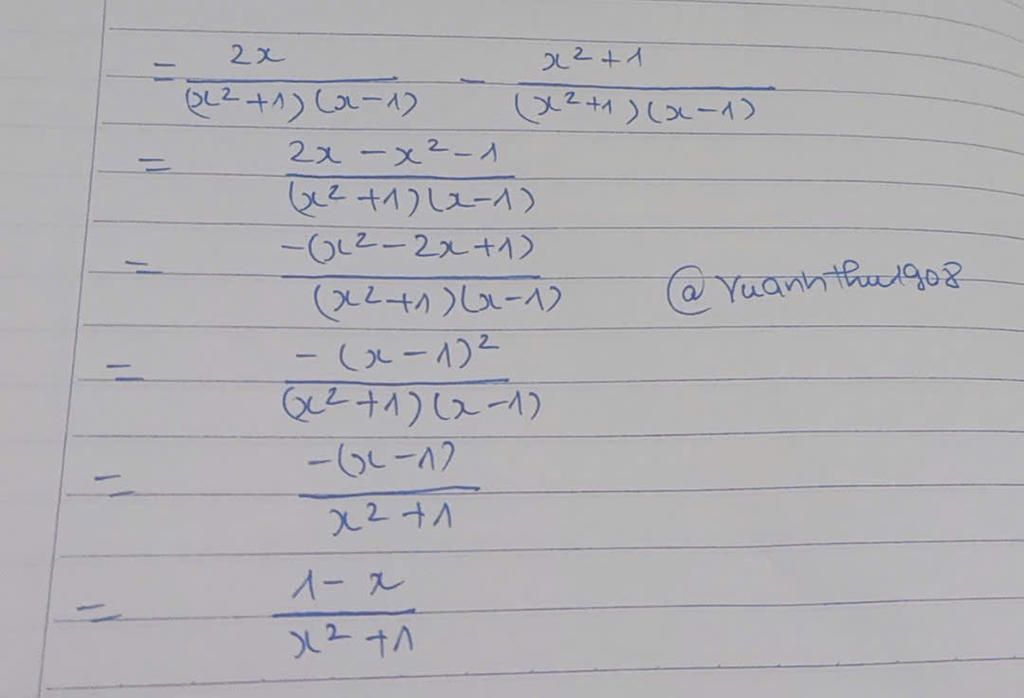 = 2x/((x²+1)(x-1)) - (x²+1)/((x²+1)(x-1))
= (2x-x²-1)/((x²+1)(x-1))
= -(x²-2x+1)/((x²+1)(x-1))
@vuanhthu1908
= -(x-1)²/((x²+1)(x-1))
= -(x-1)/(x²+1)
= (1-x)/(x²+1)